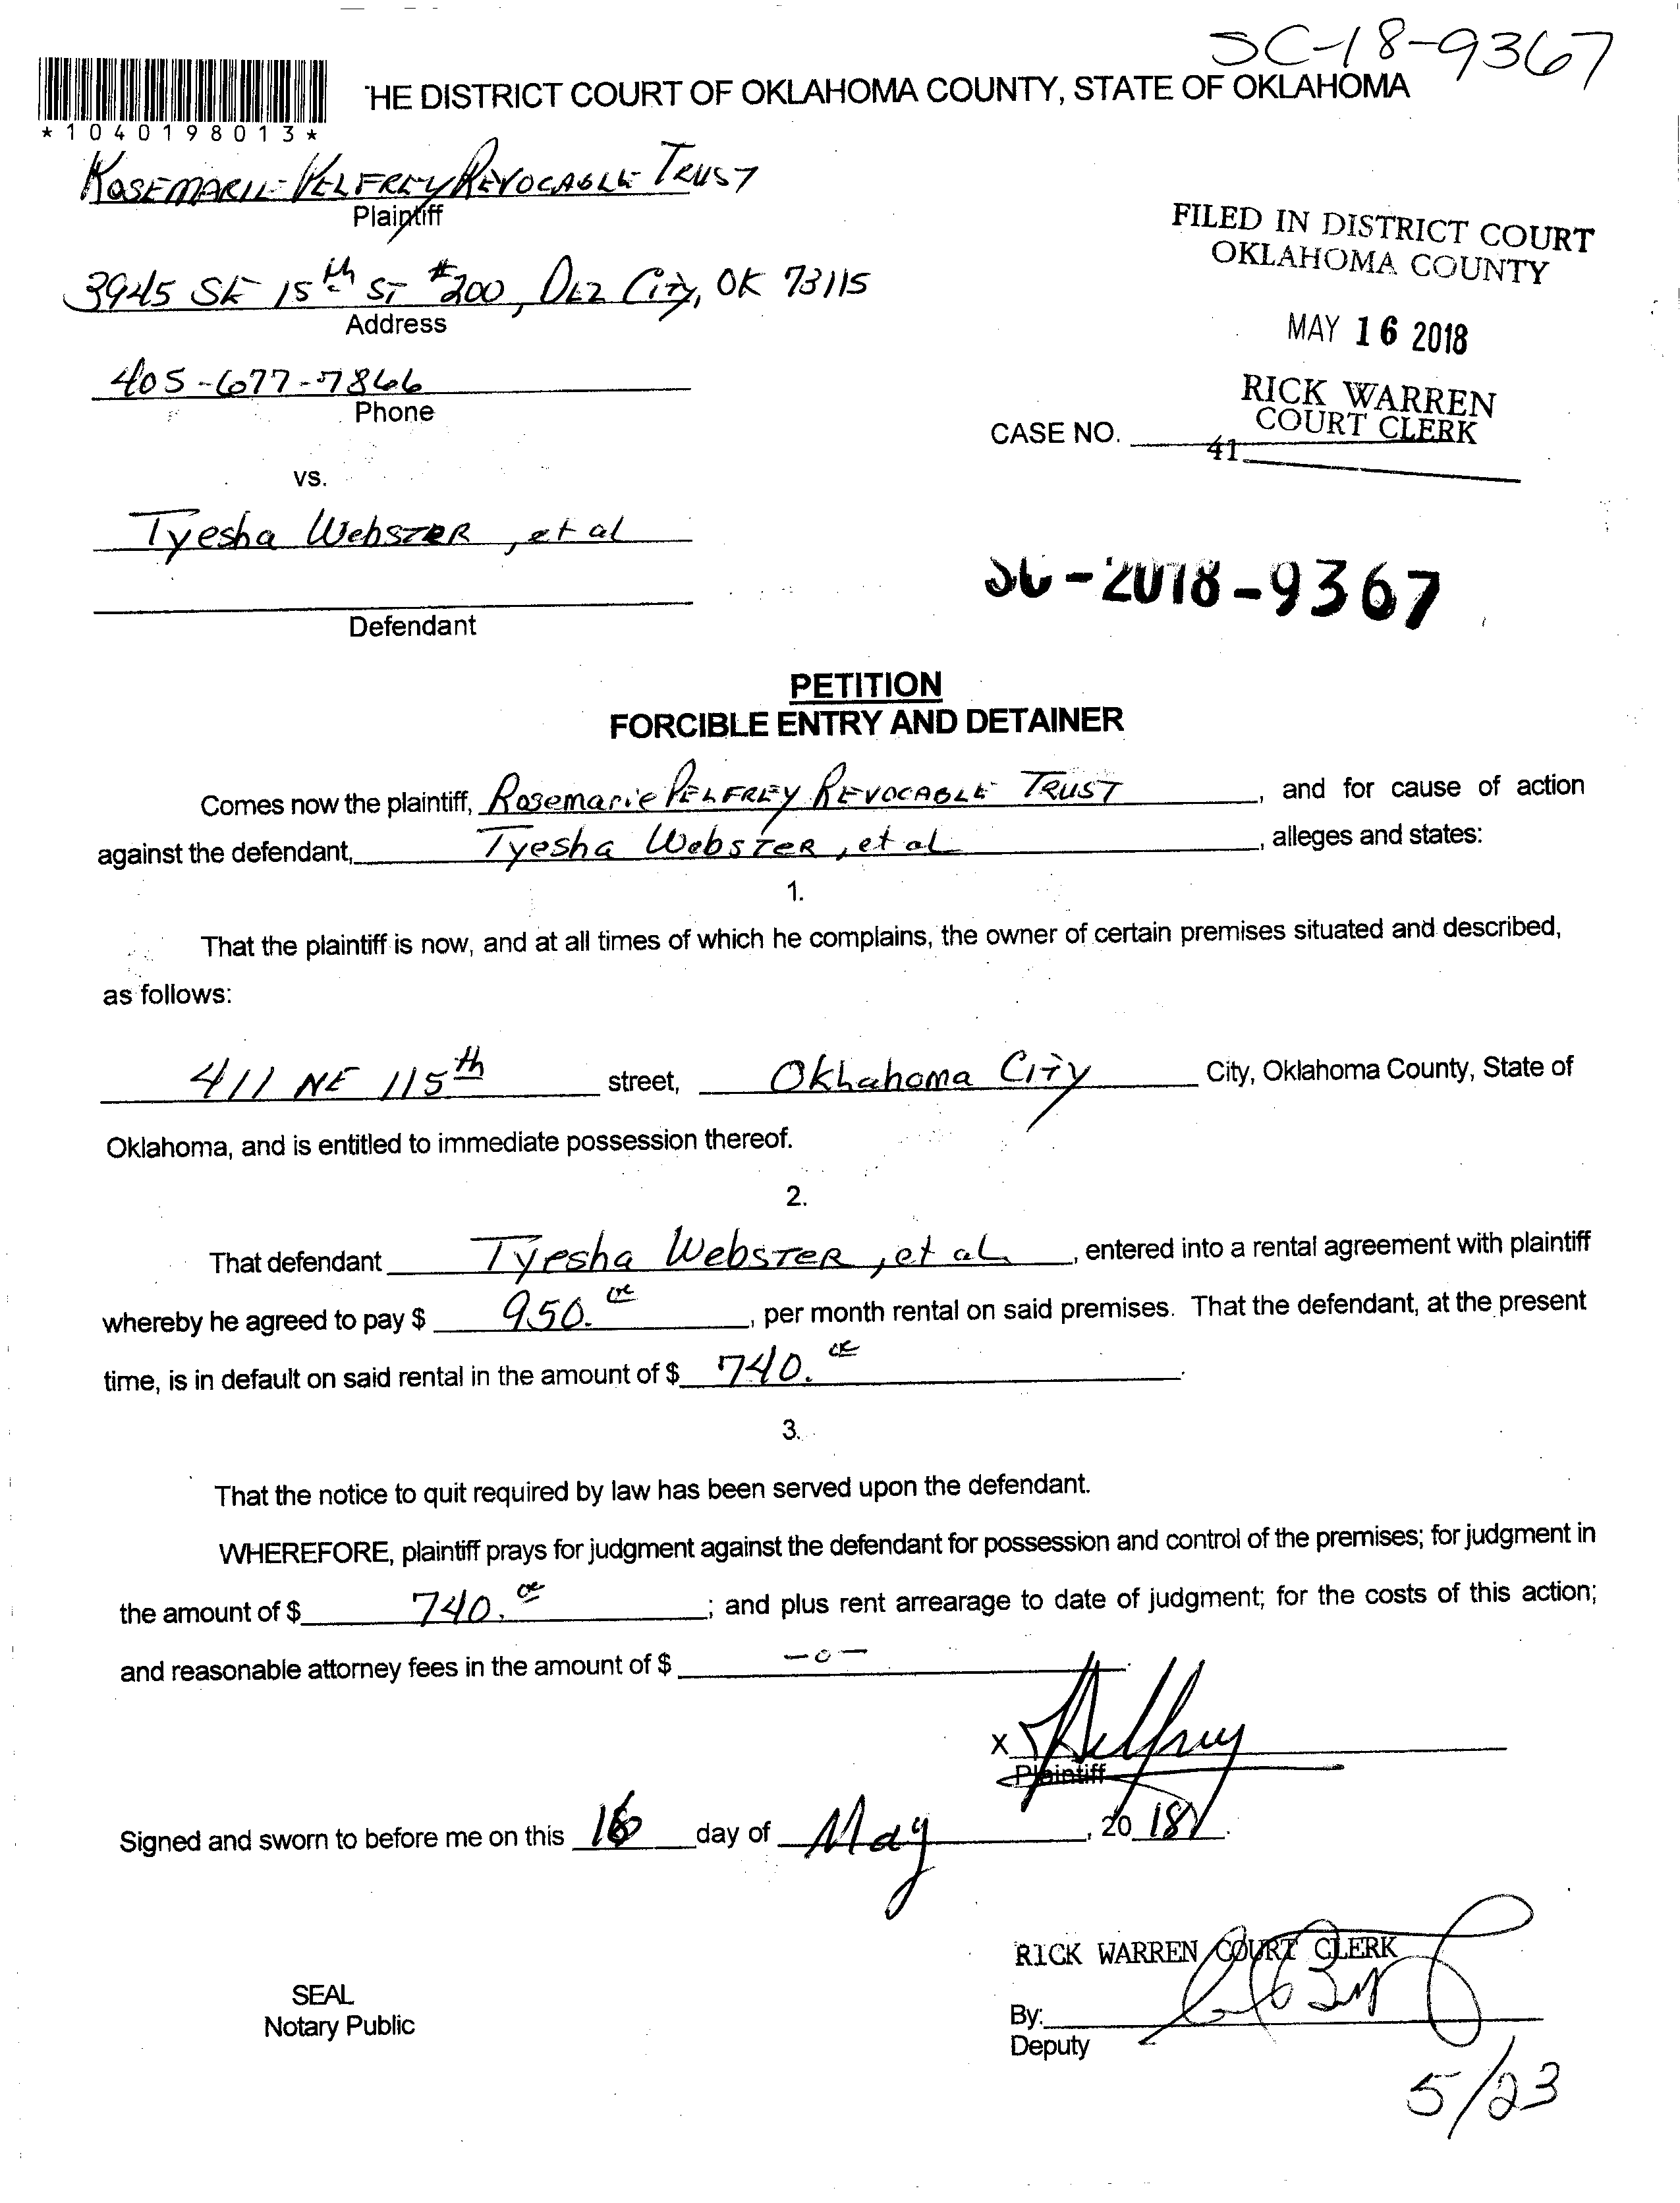 SC-18-9367
HE DISTRICT COURT OF OKLAHOMA COUNTY, STATE OF OKLAHOMA
*1040198013*
ROSEMARIE PELFREY REVOCABLE TRUST
Plaintiff
FILED IN DISTRICT COURT
OKLAHOMA COUNTY
3945 SE 15th ST #200, DEL City, OK 73115
Address
MAY 16 2018
405-677-7866
Phone
RICK WARREN
COURT CLERK
CASE NO.
41
vs.
Tyesha WebsTER, et al
SC-2018-9367
Defendant
PETITION
FORCIBLE ENTRY AND DETAINER
Comes now the plaintiff, Rosemarie PELFREY REVOCABLE TRUST, and for cause of action
against the defendant, Tyesha WebsTER, et al, alleges and states:
1.
That the plaintiff is now, and at all times of which he complains, the owner of certain premises situated and described,
as follows:
411 NE 115th street, Oklahoma City City, Oklahoma County, State of
Oklahoma, and is entitled to immediate possession thereof.
2.
That defendant Tyesha WebsTER, et al, entered into a rental agreement with plaintiff
whereby he agreed to pay $ 950.00, per month rental on said premises. That the defendant, at the present
time, is in default on said rental in the amount of $ 740.00.
3.
That the notice to quit required by law has been served upon the defendant.
WHEREFORE, plaintiff prays for judgment against the defendant for possession and control of the premises; for judgment in
the amount of $ 740.00; and plus rent arrearage to date of judgment; for the costs of this action;
and reasonable attorney fees in the amount of $ -0-.
X Pelfrey
Plaintiff
Signed and sworn to before me on this 16 day of May, 2018.
RICK WARREN COURT CLERK
SEAL
Notary Public
By:
Deputy
5/23